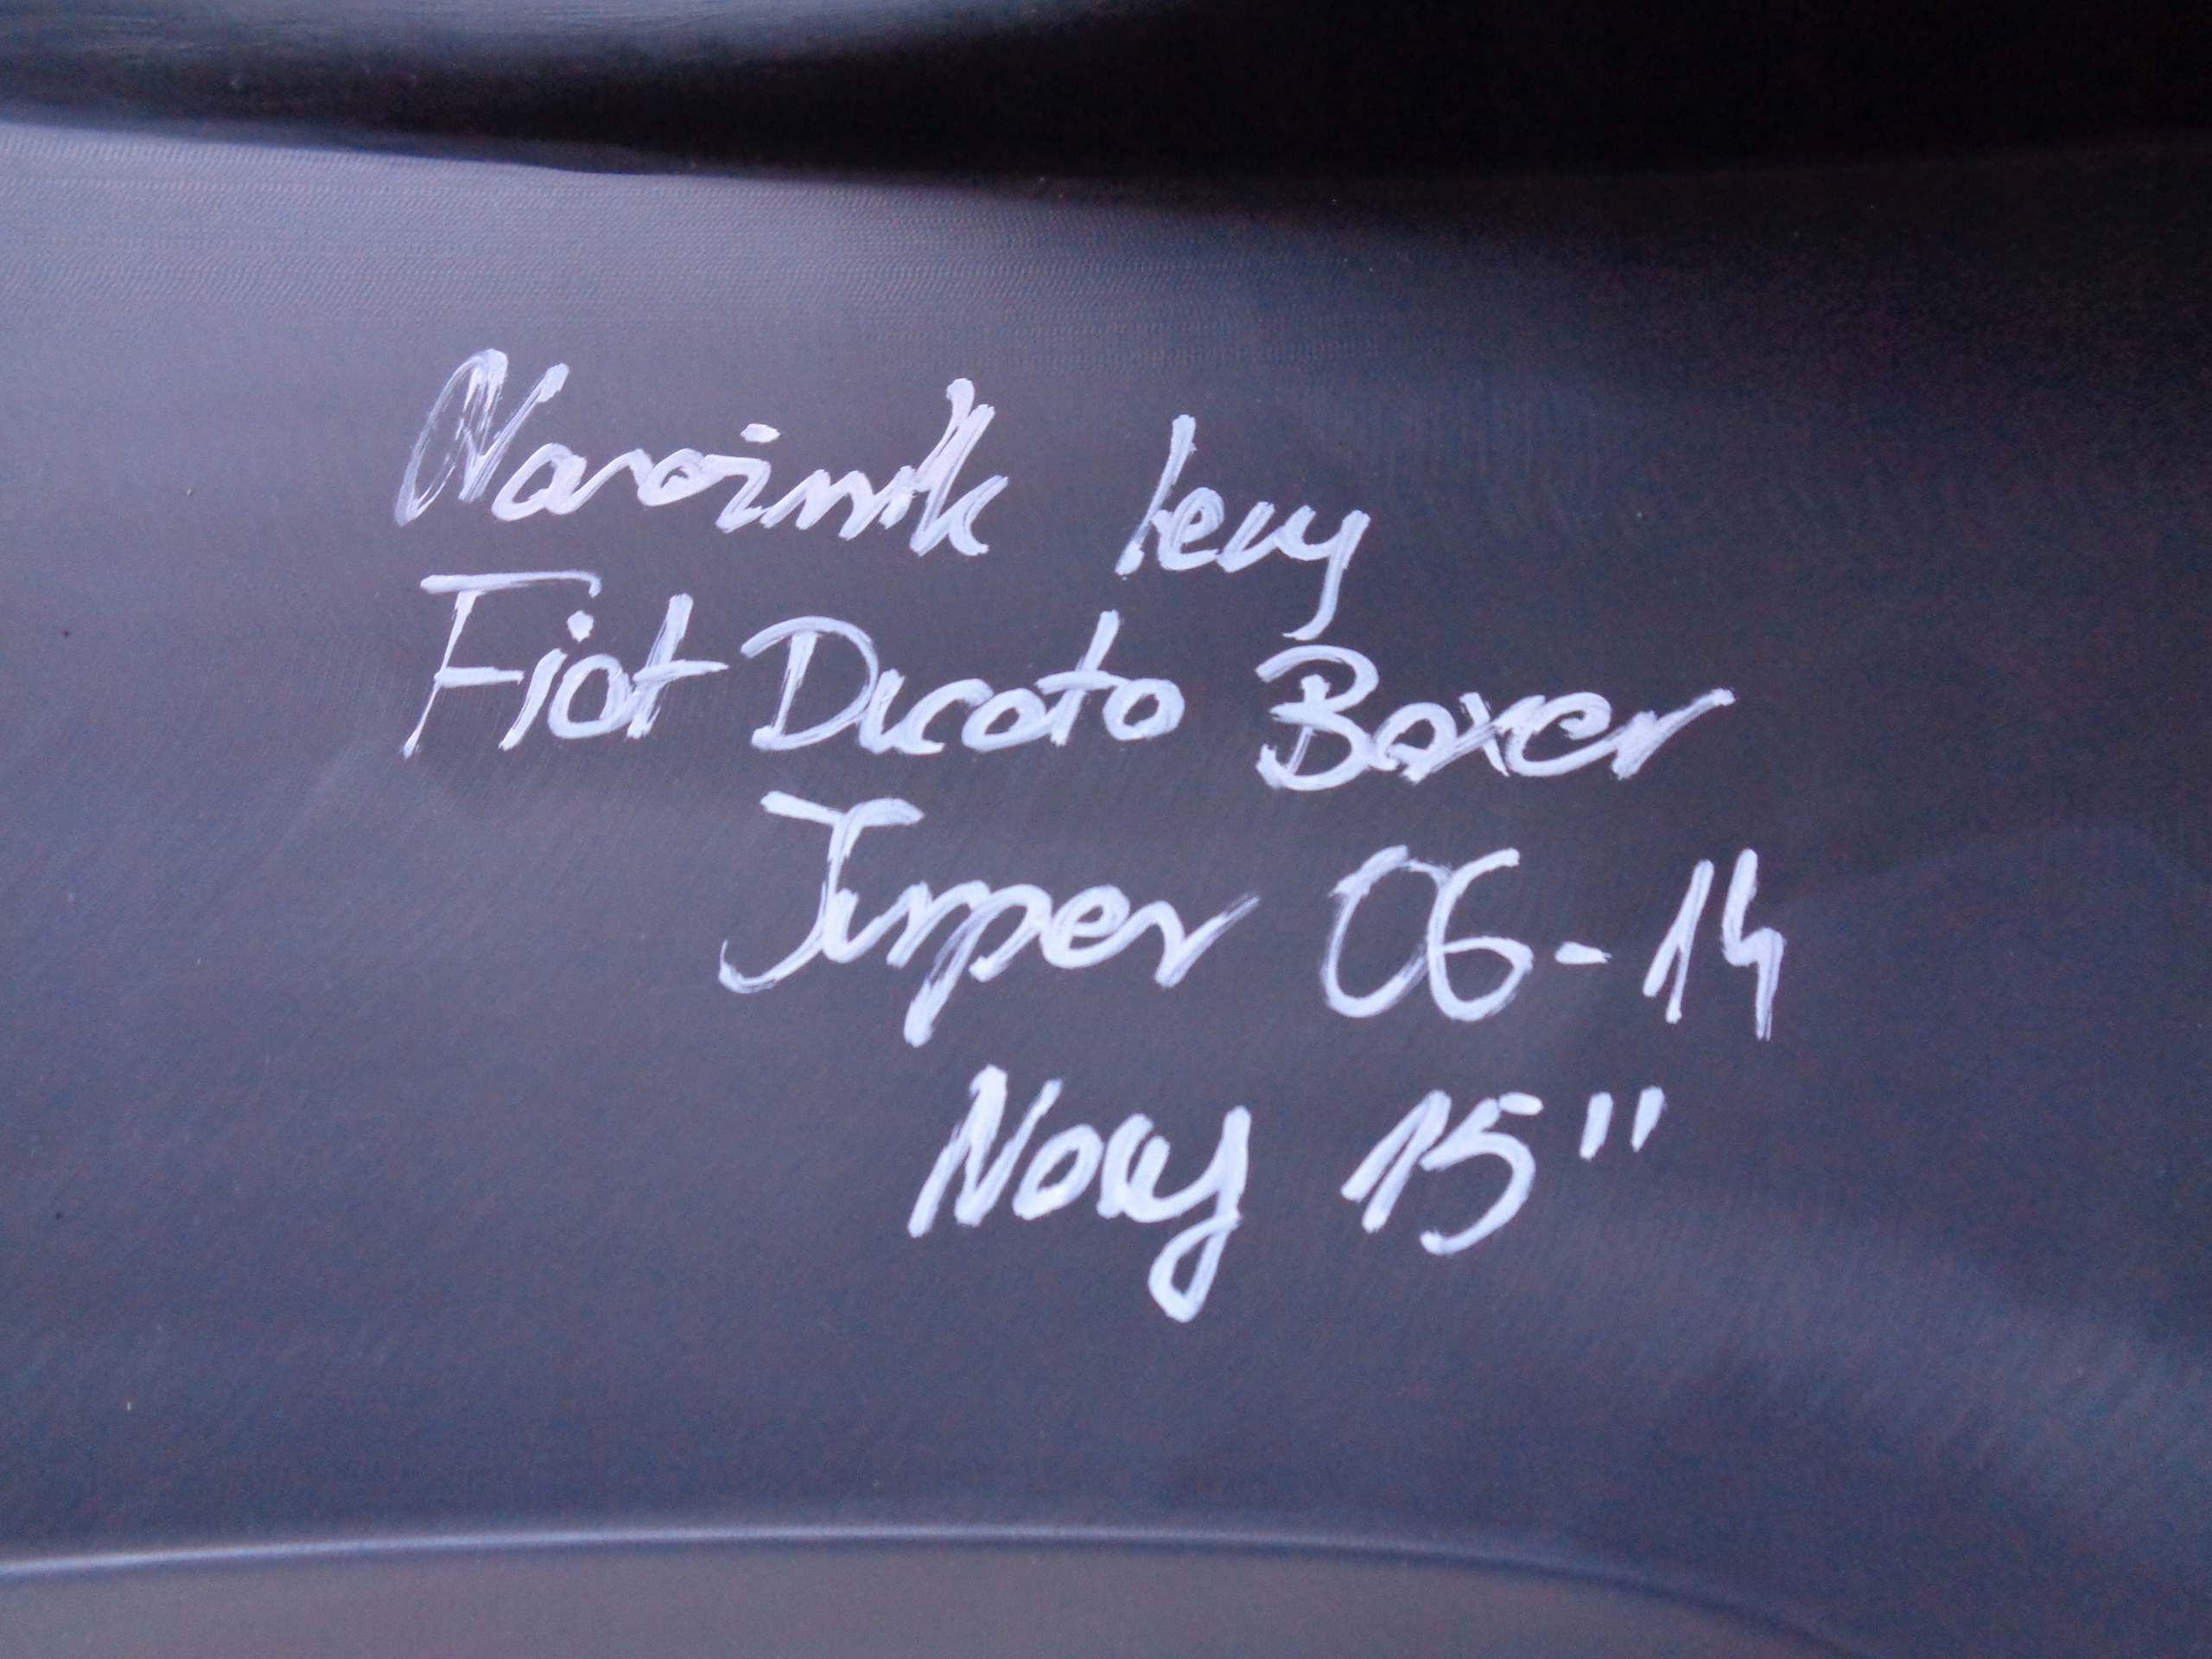 Narożnik lewy
Fiat Ducato Boxer
Jumper 06-14
Nowy 15"